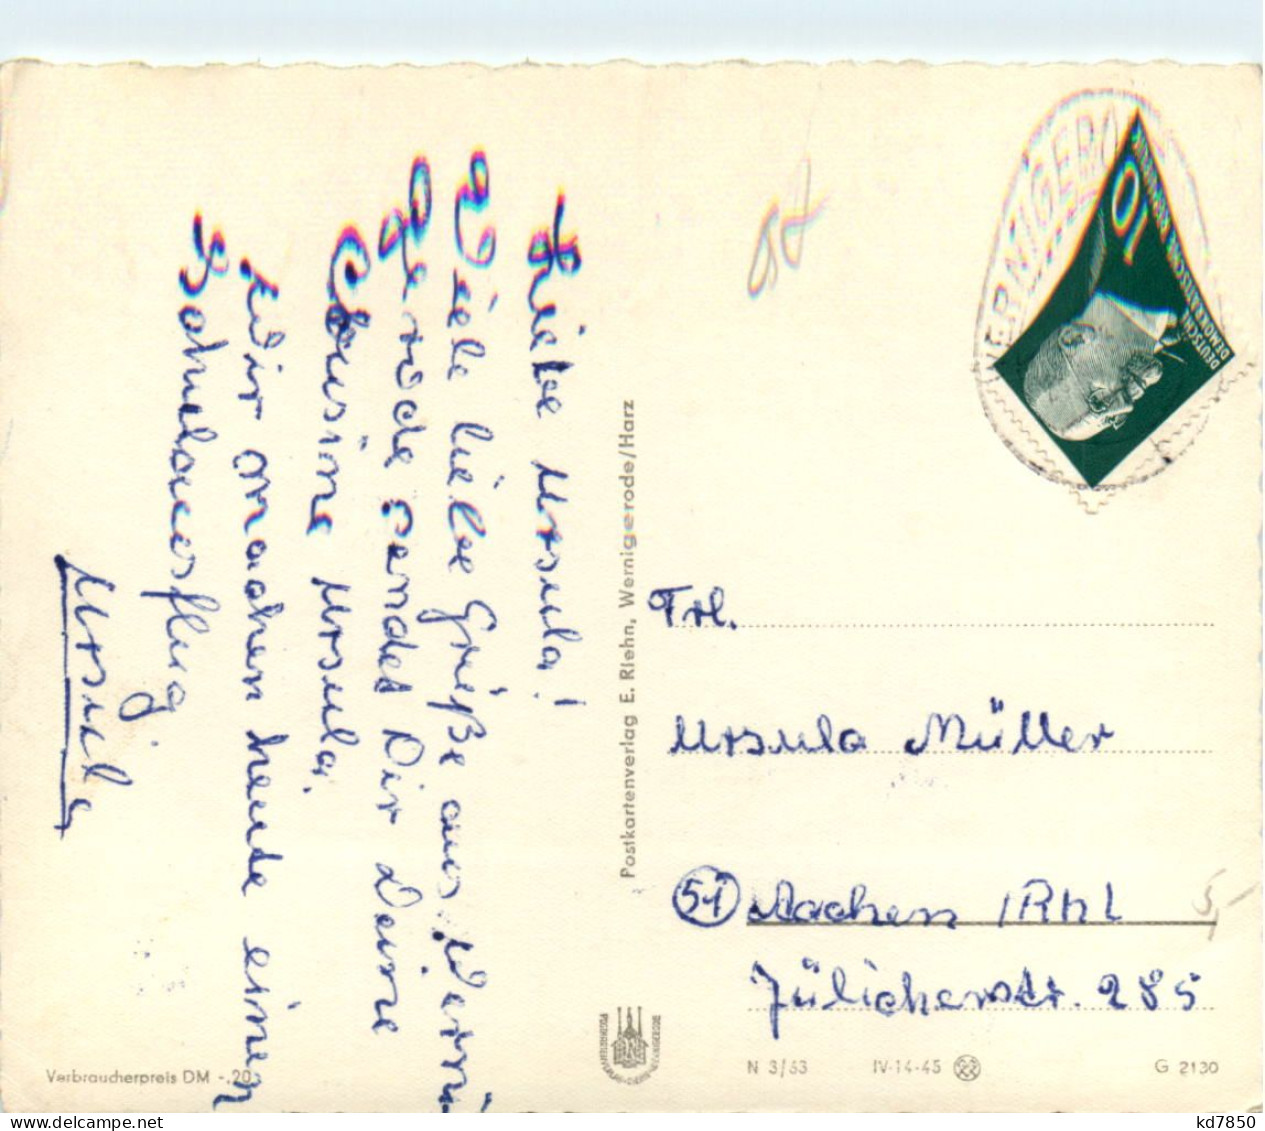 Liebe Ursula!
Viele liebe Grüße aus Werni
gerode sendet Dir Deine
Cousine Ursula.
Wir machen heute einen
Schulausflug.
Ursula
Postkartenverlag E. Riehn, Wernigerode/Harz
WERNIGERO
10
DEUTSCHE
DEMOKRATISCHE
Frl.
Ursula Müller
51 Aachen /Rhl
Jülicherstr. 285
5,-
Verbraucherpreis DM -,20
N 3/63 IV-14-45 G 2130
kd7850